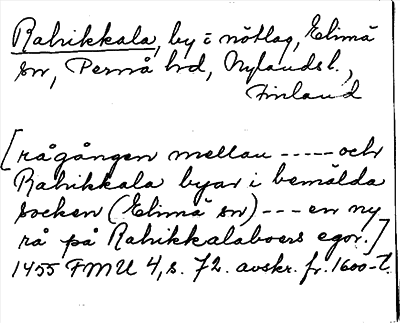 Rahikkala, by i nötlag, Elimä
sn, Pernå hd, Nylandsl.,
Finland
[rågången mellan ----- och
Rahikkala byar i bemälda
socken (Elimä sn) --- en ny
rå på Rahikkalaboers egor.]
1455 FMU 4, s. 72. avskr. fr. 1600-t.